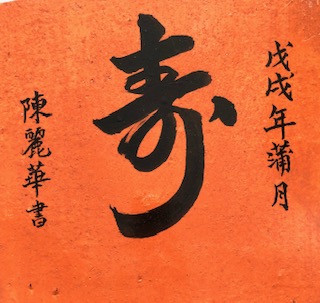 戊戌年蒲月
寿
陳麗華書